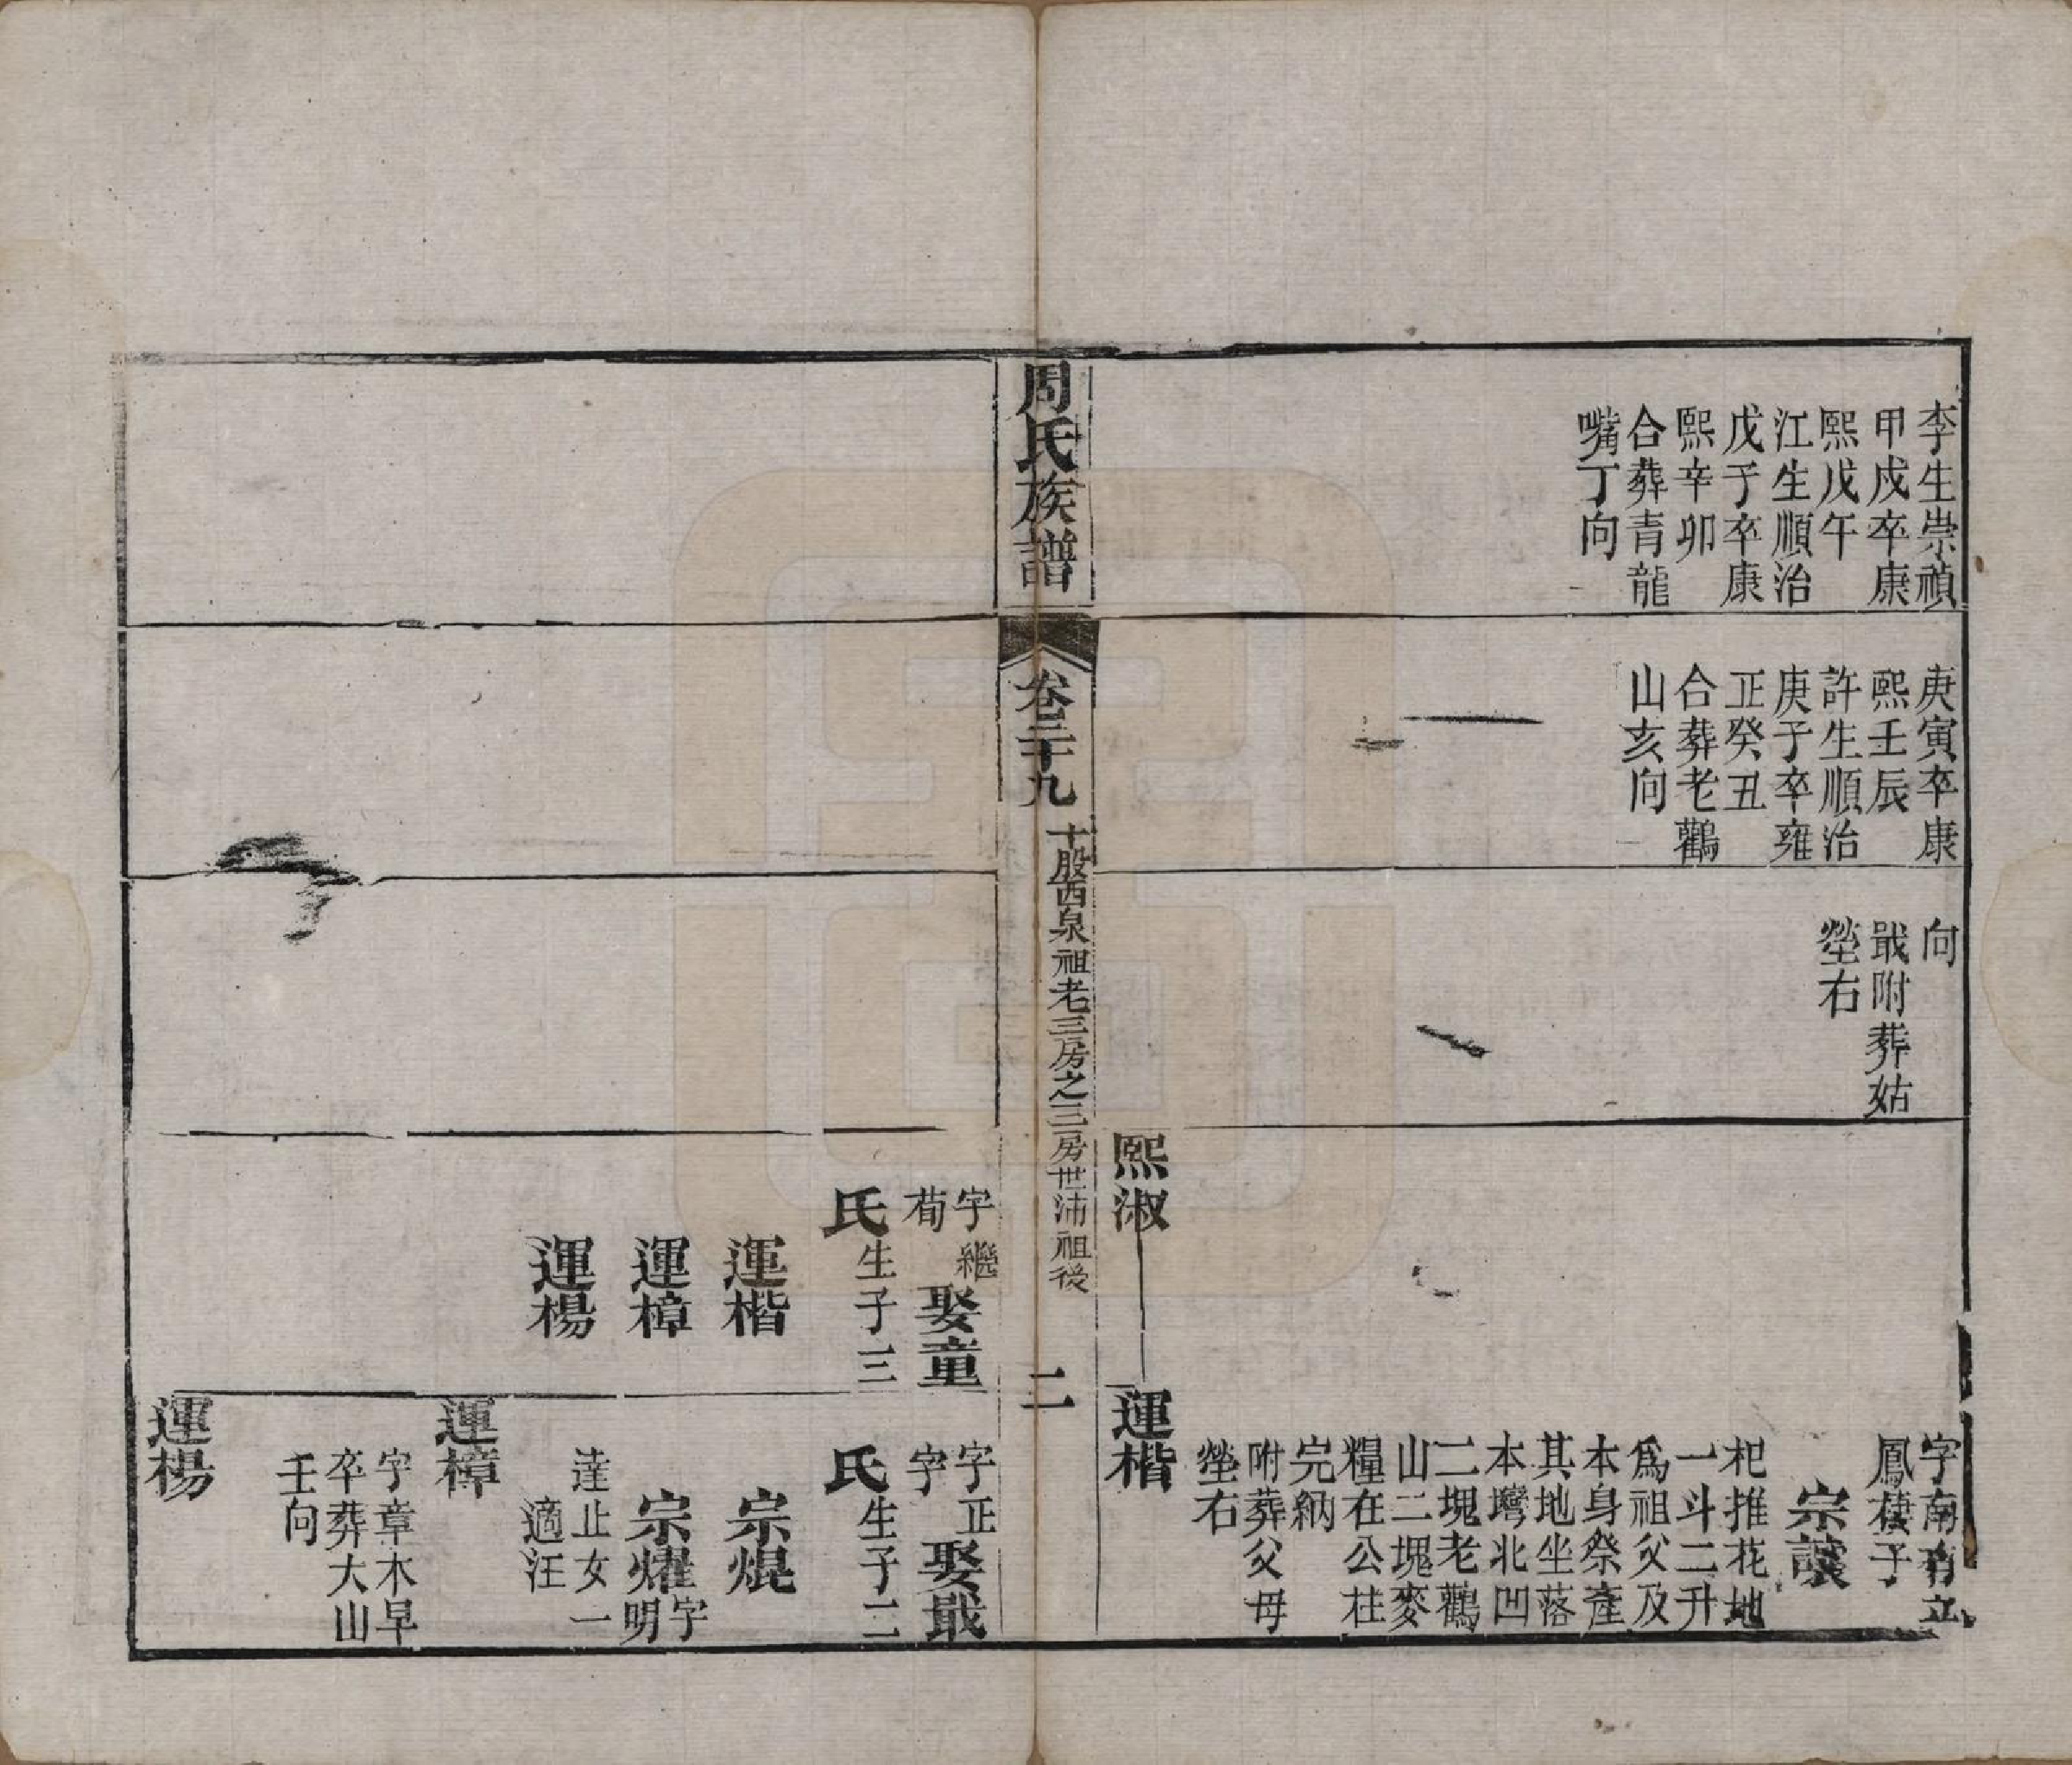 李生崇禎
甲戍卒康
熙戊午
江生順治
戊子卒康
熙辛卯
合葬青龍
嘴丁向
庚寅卒康
熙壬辰
許生順治
庚子卒雍
正癸丑
合葬老鸛
山亥向
向
戢附葬姑
塋右
熙淑
字南有立
鳳棲子
宗讓
杞推花地
一斗二升
為祖父及
本身祭產
其地坐落
本塆北凹
二塊老鸛
山二塊麥
糧在公柱
完納
附葬父母
塋右
運楷
周氏族譜
卷三十九
十股西泉祖老三房之三房世沛祖後
二
字繼
荀
娶童
氏生子三
運楷
運樟
運楊
字正
字
娶戢
氏生子二
宗焜
宗燿字
明
達止女一
適汪
運樟
字章木早
卒葬大山
壬向
運楊